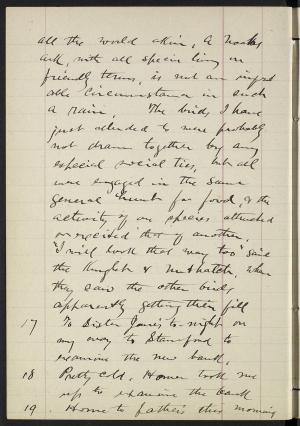 all the world akin. A Noahs
ark, with all species living on
friendly terms, is not an
circumstance in such
a rain. The birds I have
just attended to were probably
not drawn together by any
especial social ties, but all
were engaged in the same
general hunt for food, & the
activity of one species attracted
or excited that of another.
"I will look that way too" said
the Kinglet & Nuthatch, when
they saw the other birds
apparently getting their fill
17 To Sister Jane's to-night on
my way to Stamford to
examine the new bank.
18 Pretty cold. Homer took me
up to examine the bank
19. Home to father's this morning